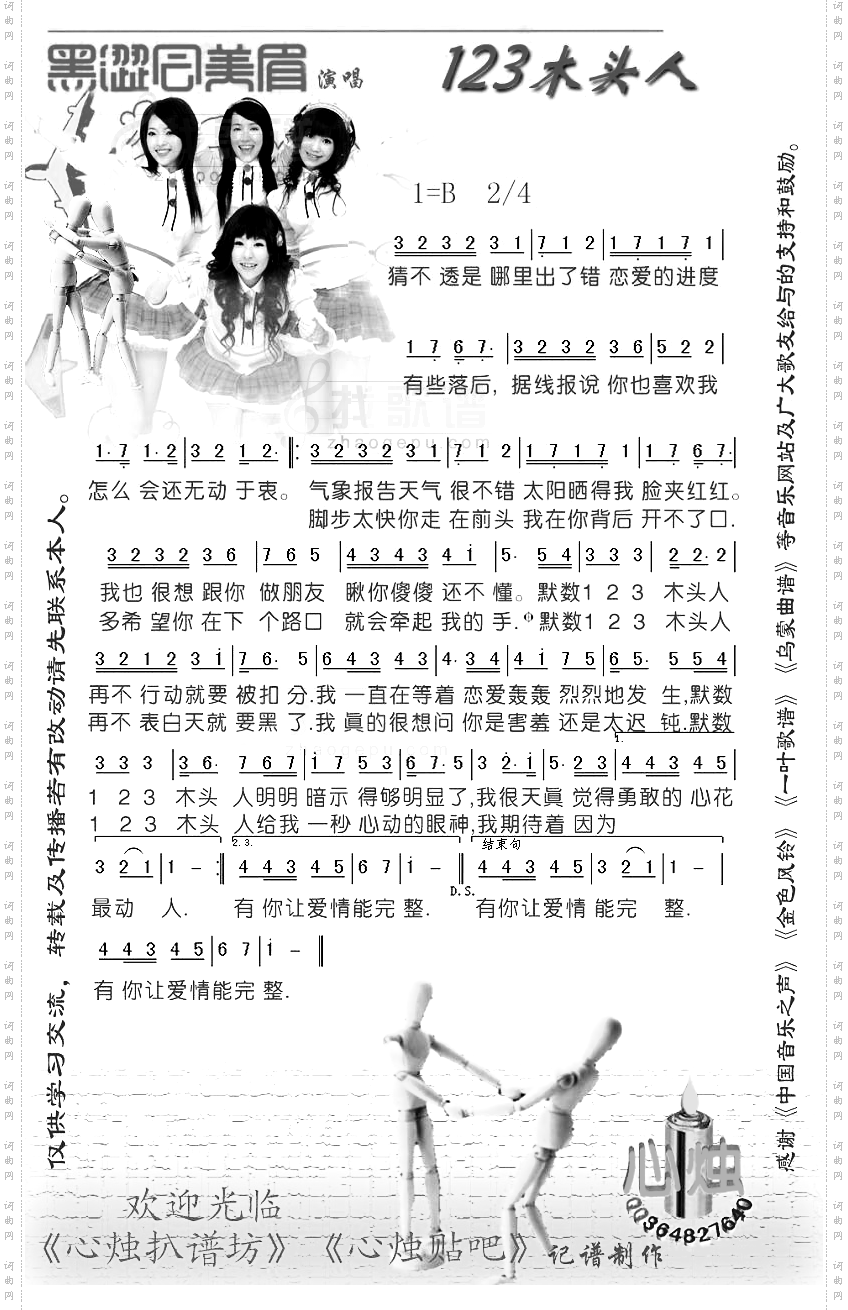 黑涩会美眉 演唱 123木头人
1=B 2/4
3 2 3 2 3 1 | 7 1 2 | 1 7 1 7 1 |
猜不 透是 哪里出了错 恋爱的进度
1 7 6 7· | 3 2 3 2 3 6 | 5 2 2 |
有些落后, 据线报说 你也喜欢我
1· 7 1· 2 | 3 2 1 2· ‖: 3 2 3 2 3 1 | 7 1 2 | 1 7 1 7 1 | 1 7 6 7· |
怎么 会还无动 于衷。 气象报告天气 很不错 太阳晒得我 脸夹红红。
脚步太快你走 在前头 我在你背后 开不了口.
3 2 3 2 3 6 | 7 6 5 | 4 3 4 3 4 i | 5· 5 4 | 3 3 3 | 2 2· 2 |
我也 很想 跟你 做朋友 瞅你傻傻 还不 懂。默数1 2 3 木头人
多希 望你 在下 个路口 就会牵起 我的 手. 默数1 2 3 木头人
3 2 1 2 3 i | 7 6· 5 | 6 4 3 4 3 | 4· 3 4 | 4 i 7 5 | 6 5· 5 5 4 |
再不 行动就要 被扣 分.我 一直在等着 恋爱轰轰 烈烈地发 生,默数
再不 表白天就 要黑 了.我 真的很想问 你是害羞 还是太迟 钝.默数
1.
3 3 3 | 3 6· 7 6 7 | i 7 5 3 | 6 7· 5 | 3 2· i | 5· 2 3 | 4 4 3 4 5 |
1 2 3 木头 人明明 暗示 得够明显了,我很天真 觉得勇敢的 心花
1 2 3 木头 人给我 一秒 心动的眼神,我期待着 因为
2.3. 结束句
3 2 1 | 1 – :‖ 4 4 3 4 5 | 6 7 | i – ‖ 4 4 3 4 5 | 3 2 1 | 1 – |
D.S.
最动 人. 有 你让爱情能完 整. 有你让爱情 能完 整.
4 4 3 4 5 | 6 7 | i – ‖
有 你让爱情能完 整.
仅供学习交流，转载及传播若有改动请先联系本人。
感谢《中国音乐之声》《金色风铃》《一叶歌谱》《乌蒙曲谱》等音乐网站及广大歌友给与的支持和鼓励。
找歌谱
zhaogepu.com
心烛
QQ364827640
欢迎光临
《心烛扒谱坊》《心烛贴吧》记谱制作
词曲网